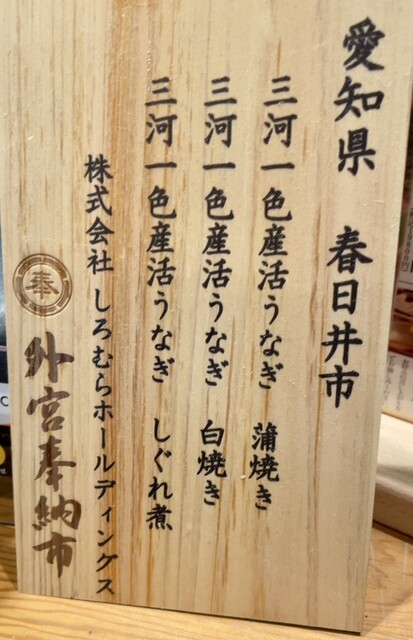 愛知県 春日井市
三河一色産活うなぎ 蒲焼き
三河一色産活うなぎ 白焼き
三河一色産活うなぎ しぐれ煮
株式会社 しろむらホールディングス
奉
外宮奉納市